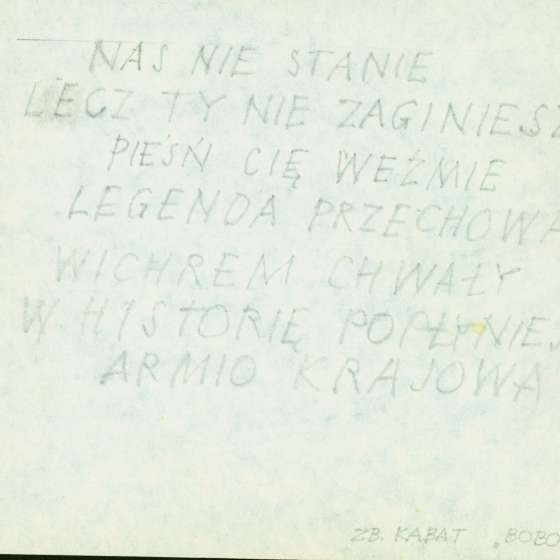 NAS NIE STANIE
LECZ TY NIE ZAGINIESZ
PIEŚŃ CIĘ WEŹMIE
LEGENDA PRZECHOWA
WICHREM CHWAŁY
W HISTORIĘ POPŁYNIES
ARMIO KRAJOWA
ZB. KABAT „BOBO